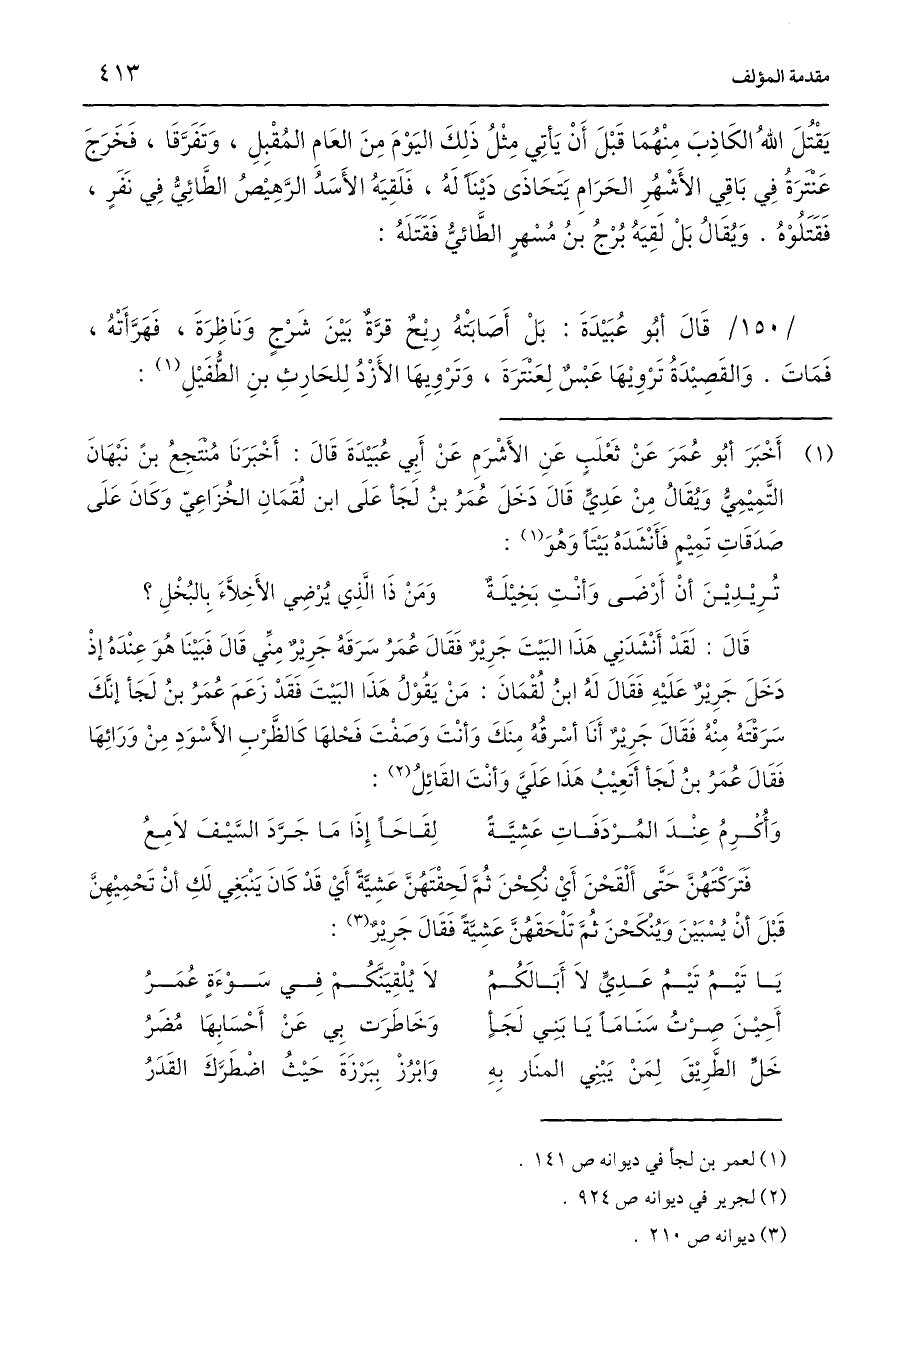 مقدمة المؤلف ٤١٣
يَقْتُلَ اللهُ الكَاذِبَ مِنْهُمَا قَبْلَ أَنْ يَأْتِي مِثْلُ ذَلِكَ اليَوْمَ مِنَ العَامِ المُقْبِلِ ، وَتَفَرَّقَا ، فَخَرَجَ
عَنْتَرَةُ فِي بَاقِي الأَشْهُرِ الحَرَامِ يَتَحَاذَى دَيْنَاً لَهُ ، فَلَقِيَهُ الأَسَدُ الرَّهِيْصُ الطَّائِيُّ فِي نَفَرٍ ،
فَقَتَلُوْهُ . وَيُقَالُ بَلْ لَقِيَهُ بُرْجُ بنُ مُسْهِرٍ الطَّائيُّ فَقَتَلَهُ :
/١٥٠/ قَالَ أَبُو عُبَيْدَةَ : بَلْ أَصَابَتْهُ رِيْحٌ قَرَّةٌ بَيْنَ شَرْجٍ وَنَاظِرَةَ ، فَهَرَّأَتْهُ ،
فَمَاتَ . وَالقَصِيْدَةُ تَرْوِيْهَا عَبْسٌ لِعَنْتَرَةَ ، وَتَرْوِيهَا الأَزْدُ لِلحَارِثِ بنِ الطُّفَيْلِ(١) :
(١) أَخْبَرَ أَبُو عُمَرَ عَنْ ثَعْلَبٍ عَنِ الأَشْرَمِ عَنْ أَبِي عُبَيْدَةَ قَالَ : أَخْبَرَنَا مُنْتَجِعُ بنُ نَبْهَانَ
التَّمِيْمِيُّ وَيُقَالُ مِنْ عَدِيٍّ قَالَ دَخَلَ عُمَرُ بنُ لَجَأ عَلَى ابن لُقْمَانِ الخُزَاعِيّ وَكَانَ عَلَى
صَدَقَاتِ تَمِيْمٍ فَأَنْشَدَهُ بَيْتَاً وَهُوَ(١) :
تُرِيْدِيْنَ أَنْ أَرْضَى وَأَنْتِ بَخِيْلَةٌ وَمَنْ ذَا الَّذِي يُرْضِي الأَخِلاَّءَ بِالبُخْلِ ؟
قَالَ : لَقَدْ أَنْشَدَنِي هَذَا البَيْتَ جَرِيْرٌ فَقَالَ عُمَرُ سَرَقَهُ جَرِيْرٌ مِنِّي قَالَ فَبَيْنَا هُوَ عِنْدَهُ إِذْ
دَخَلَ جَرِيْرٌ عَلَيْهِ فَقَالَ لَهُ ابنُ لُقْمَانَ : مَنْ يَقُوْلُ هَذَا البَيْتَ فَقَدْ زَعَمَ عُمَرُ بنُ لَجَأ إِنَّكَ
سَرَقْتَهُ مِنْهُ فَقَالَ جَرِيْرٌ أَنَا أَسْرِقُهُ مِنكَ وَأَنْتَ وَصَفْتَ فَحْلهَا كَالظَّرْبِ الأَسْوَدِ مِنْ وَرَائِهَا
فَقَالَ عُمَرُ بنُ لَجَأ أَتَعِيْبُ هَذَا عَلَيَّ وَأَنْتَ القَائِلُ(٢) :
وَأُكْرِمُ عِنْدَ المُرْدَفَاتِ عَشِيَّةً لِقَاحَاً إِذَا مَا جَرَّدَ السَّيْفَ لاَمِعُ
فَتَرَكْتَهُنَّ حَتَّى أَلْقَحْنَ أَيْ نُكِحْنَ ثُمَّ لَحِقْتَهُنَّ عَشِيَّةً أَيْ قَدْ كَانَ يَنْبَغِي لَكِ أَنْ تَحْمِيْهِنَّ
قَبْلَ أَنْ يُسْبَيْنَ وَيُنْكَحْنَ ثُمَّ تَلْحَقَهُنَّ عَشِيَّةً فَقَالَ جَرِيْرٌ(٣) :
يَا تَيْمُ تَيْمُ عَدِيٍّ لاَ أَبَالَكُمُ لاَ يُلْقِيَنَّكُمْ فِي سَوْءَةٍ عُمَرُ
أَحِيْنَ صِرْتُ سَنَامَاً يَا بَنِي لَجَأٍ وَخَاطَرَت بِي عَنْ أَحْسَابِهَا مُضَرُ
خَلِّ الطَّرِيْقَ لِمَنْ يَبْنِي المنَار بِهِ وَابْرُزْ بِبَرْزَةَ حَيْثُ اضْطَرَّكَ القَدَرُ
(١) لعمر بن لجأ في ديوانه ص ١٤١ .
(٢) لجرير في ديوانه ص ٩٢٤ .
(٣) ديوانه ص ٢١٠ .